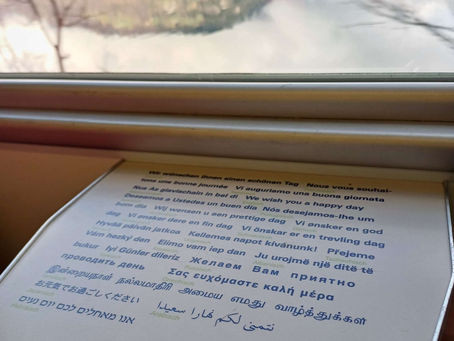 Wir wünschen Ihnen einen schönen Tag Nous vous souhai-
tons une bonne journée Vi auguriamo una buona giornata
Nus As giavischain in bel di We wish you a happy day
Deseamos a Ustedes un buen día Nós desejamos-lhe um
bom dia Wij wensen u een prettige dag Vi ønsker en god
dag Vi ønsker dere en fin dag Vi önskar er en trevlig dag
Hyvää päivän jatkoa Kellemes napot kívánunk! Přejeme
Vám hezký den Elimo vam lep dan Ju urojmë një ditë të
bukur İyi Günler dileriz Желаем Вам приятно
проводить день Σας ευχόμαστε καλή μέρα
இன்றையநாள் நல்லமாதிரி அமைய எமது வாழ்த்துக்கள்
お元気でお過ごしください نتمنى لكم نهارا سعيدا
אנו מאחלים לכם יום נעים